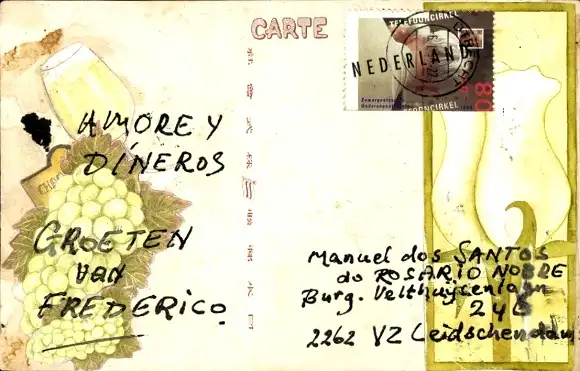 CARTE
TELEFOONCIRKEL
NEDERLAND
80
TELEFOONCIRKEL
AMORE Y
DÍNEROS
GROETEN
van
FREDERICO
Manuel dos SANTOS
do ROSARIO NOBRE
Burg. Velthuysenlaan
246
2262 VZ Leidschendam